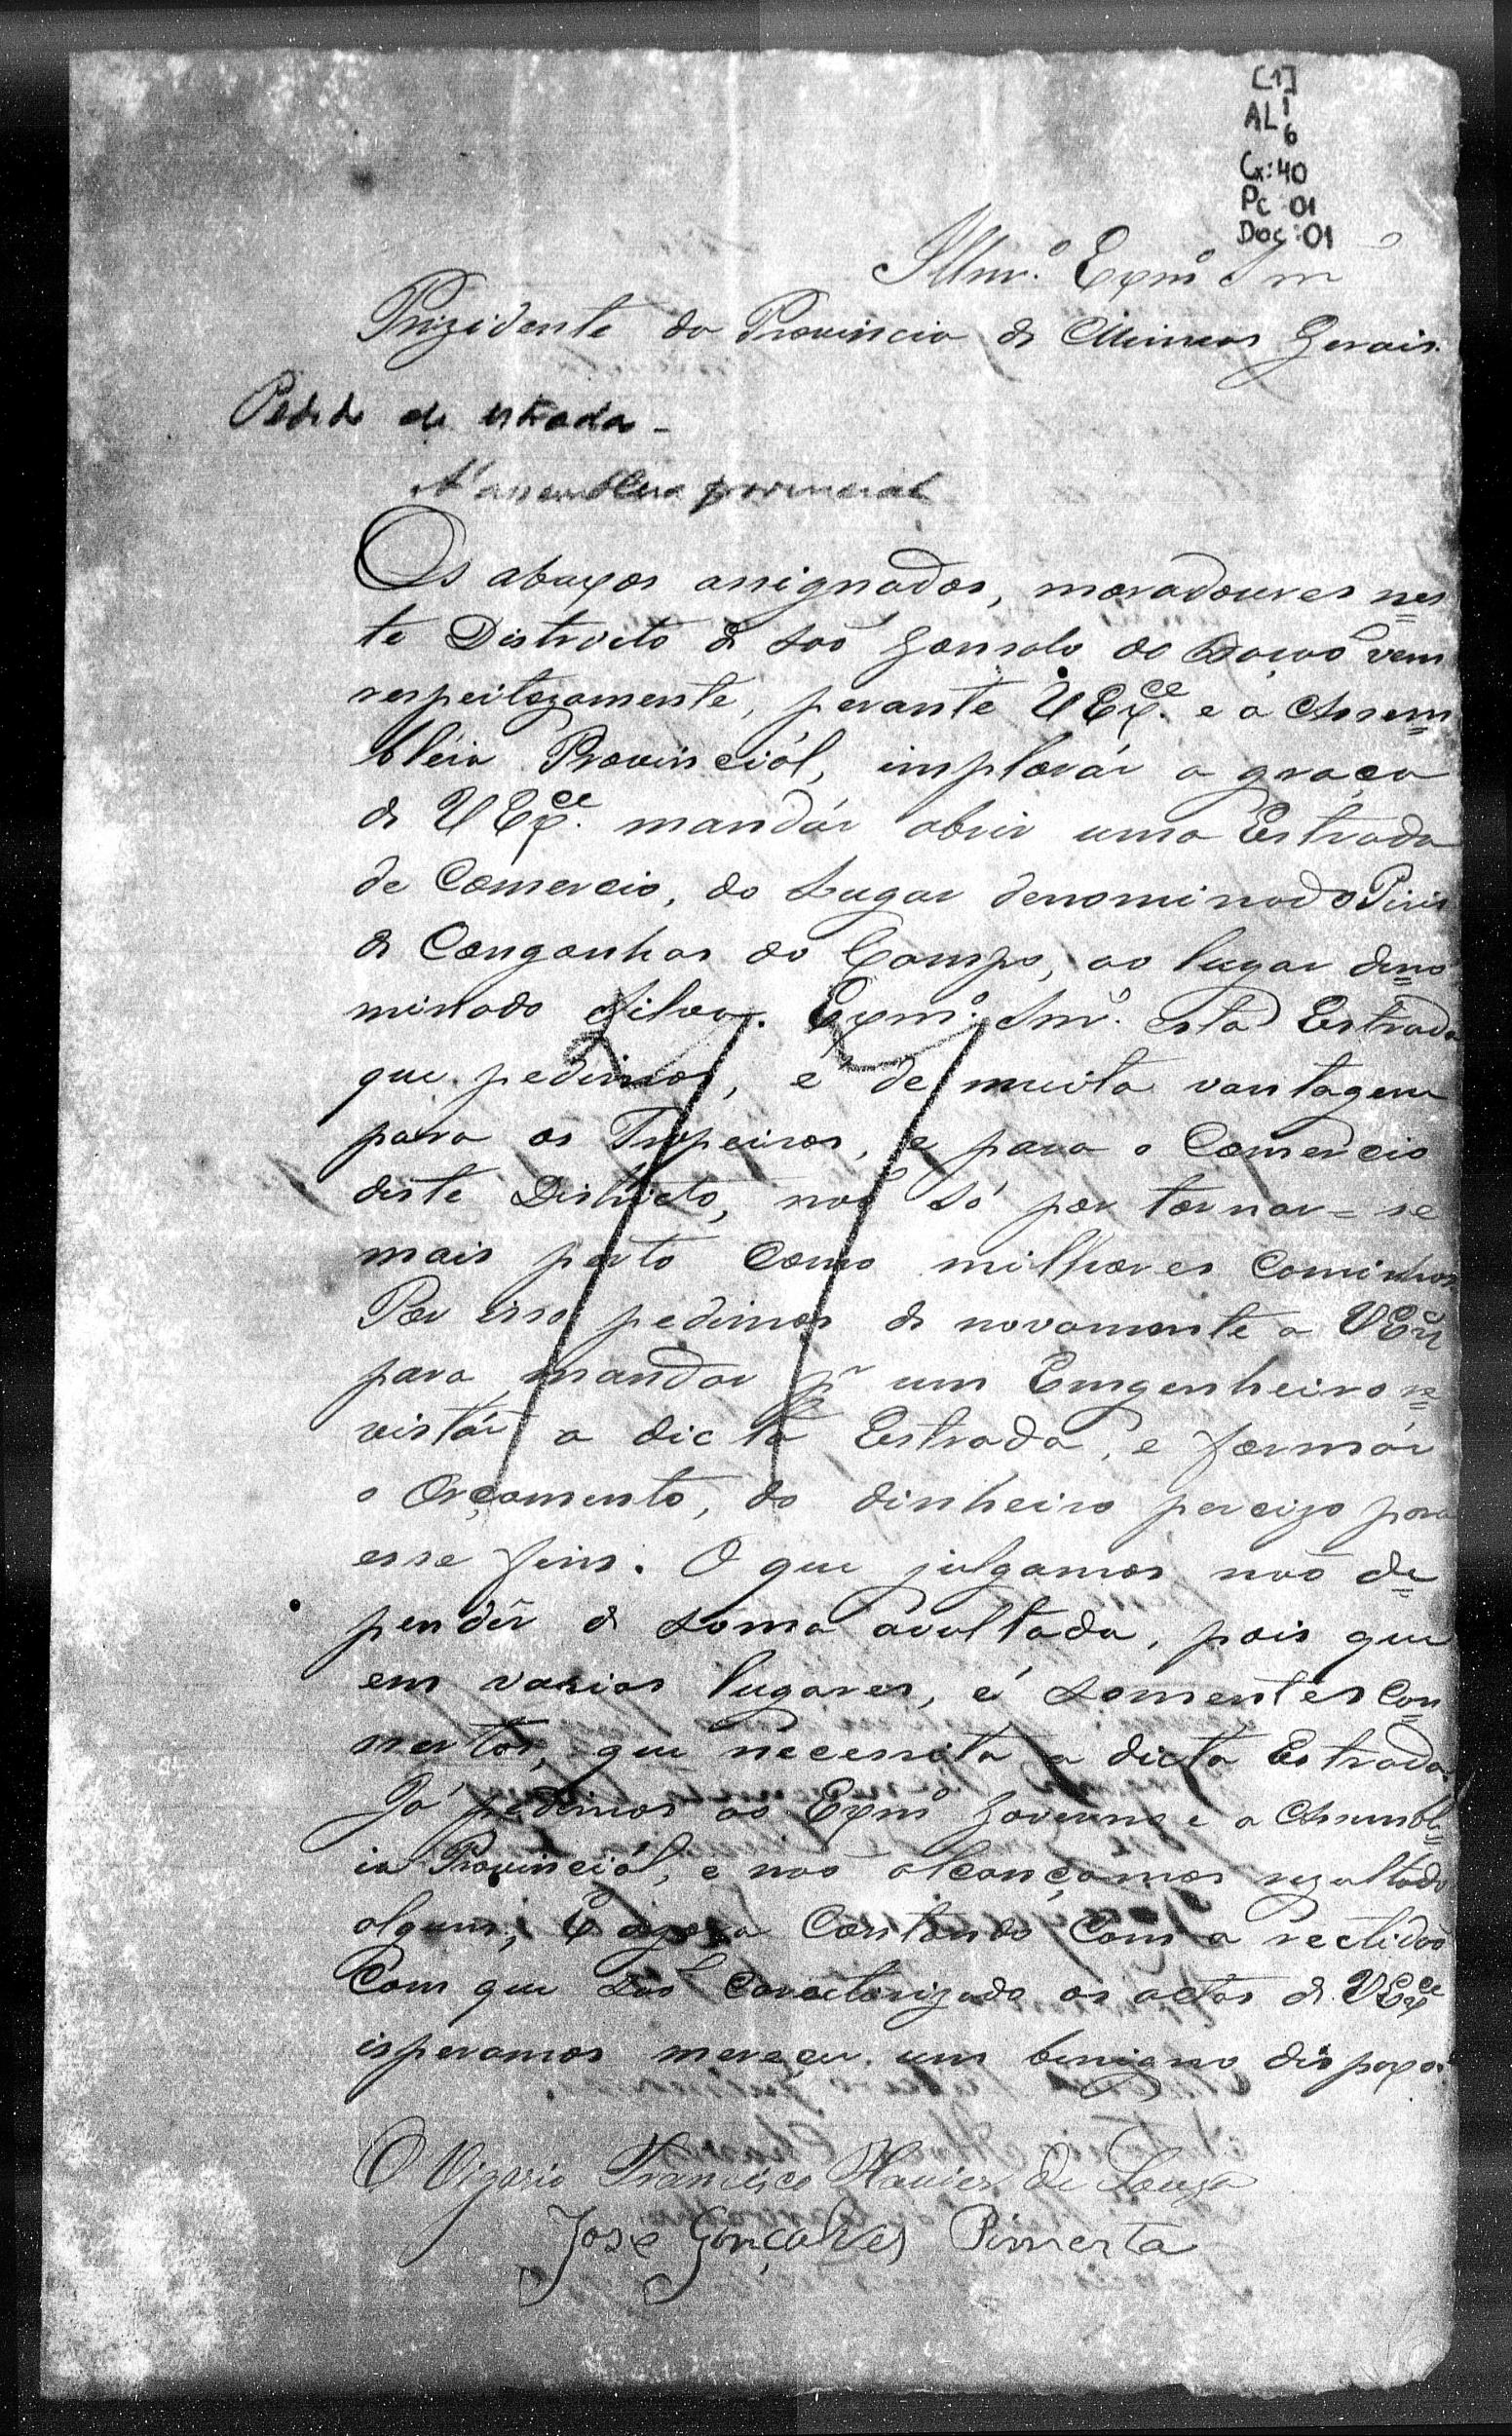 [1]
AL 1
6
Cx: 40
Pc: 01
Doc: 01
Illmº. Exmº Snr
Prizidente da Provincia de Minnas Gerais.
Pedido de estrada -
A' assemblea provincial
Os abaxos assignados, moradoures nes=
te Distrocto de São Gonsalo do vem
respeitozamente, perante V Exce. e a Assem=
bléia Provinciál, implorár a graça
de V Exce. mandár abrir uma Estrada
de Comercio, do Lugar denominado Piris
de Congonhas do Campo, ao lugar deno=
minado Silva. Exmº. Snr. esta Estrada
que pedimos, é de muita vantagem
para os Tropeiros, e para o Comercio
deste Districto, naõ só por tornar=se
mais perto como milhores Caminhos
Por isso pedimos de novamente a V
para mandar pr um Emgenheiro re=
vistár a dicta Estrada, e formár
o Orçamento, do dinheiro percizo para
esse fins. O que julgamos naõ de=
pendêr de Soma avultada, pois que
em varios lugares, é somentes Con=
sertos, que necessita a dicta Estrada.
Já pedimos ao Exmº Governo e a Assemblé=
ia Provinciál, e naõ alcançamos rezultado
algum, E agora Contando Com a rectidaõ
Com que saõ Caracterizado os actos de V Exce
isperamos mereçer um benigno dispaxo.
O Vigario Francisco Xavier de Souza
Jose Gonçalves Pimenta